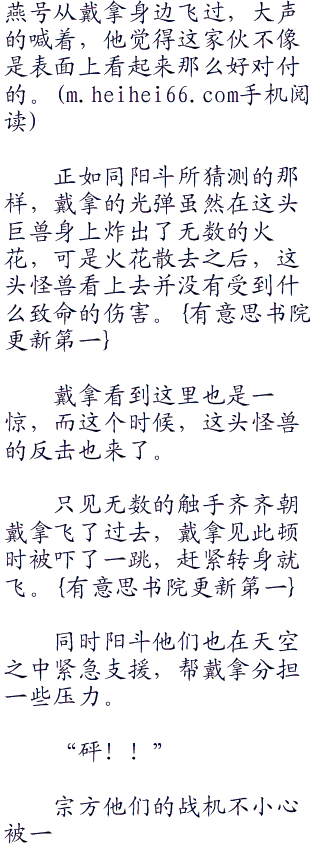 燕号从戴拿身边飞过，大声
的喊着，他觉得这家伙不像
是表面上看起来那么好对付
的。(m.heihei66.com手机阅
读)
正如同阳斗所猜测的那
样，戴拿的光弹虽然在这头
巨兽身上炸出了无数的火
花，可是火花散去之后，这
头怪兽看上去并没有受到什
么致命的伤害。{有意思书院
更新第一}
戴拿看到这里也是一
惊，而这个时候，这头怪兽
的反击也来了。
只见无数的触手齐齐朝
戴拿飞了过去，戴拿见此顿
时被吓了一跳，赶紧转身就
飞。{有意思书院更新第一}
同时阳斗他们也在天空
之中紧急支援，帮戴拿分担
一些压力。
“砰！！”
宗方他们的战机不小心
被一